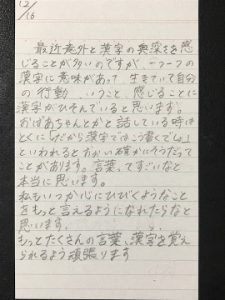 12/16
最近意外と漢字の奥深さを感
じることが多いのですが、一つ一つの
漢字に意味があって、生きていて自分
の行動、いうこと、感じることに
漢字がひそんでいると思います。
おばあちゃんとかと話している時は
とくに「だから漢字ではこう書くでしょ」
といわれるとたしかに確かにそうだって
ことがあります。言葉ってすごいなと
本当に思います。
私もいつか心にひびくようなこと
をもっと言えるようになれたらなと
思います。
もっとたくさんの言葉、漢字を覚え
られるよう頑張ります